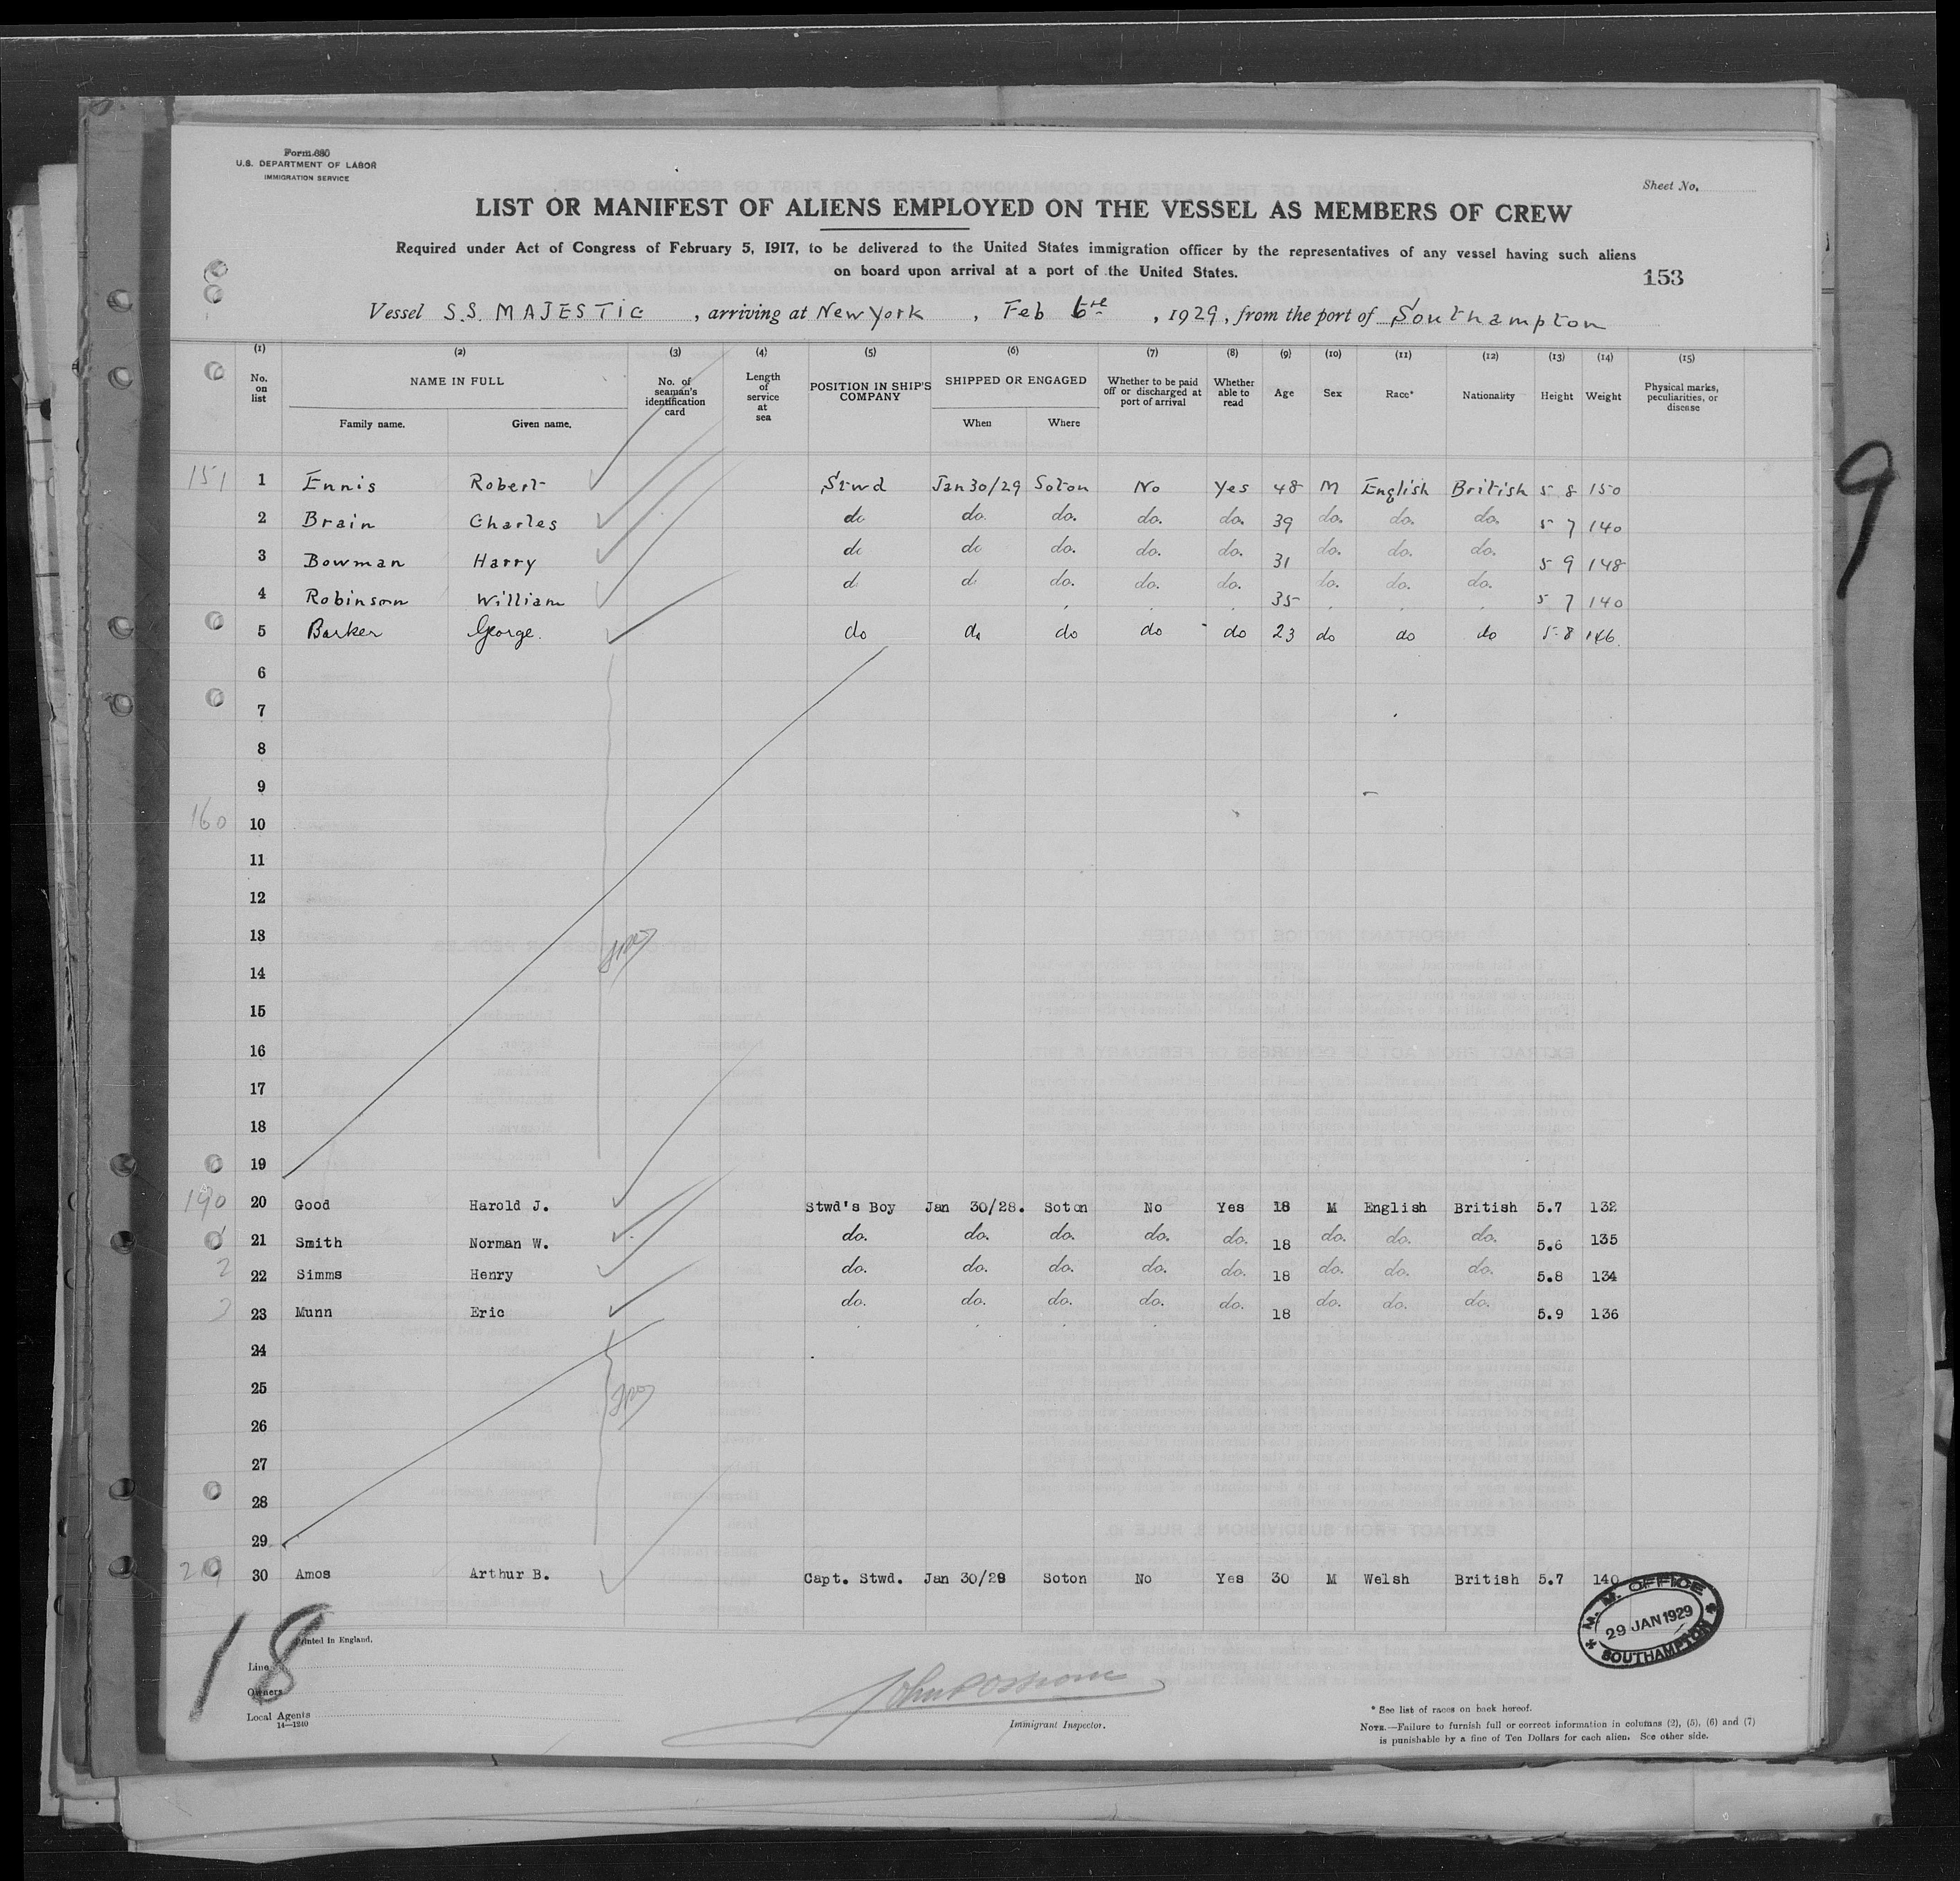 Form 680
U.S. DEPARTMENT OF LABOR
IMMIGRATION SERVICE
Sheet No.
LIST OR MANIFEST OF ALIENS EMPLOYED ON THE VESSEL AS MEMBERS OF CREW
Required under Act of Congress of February 5, 1917, to be delivered to the United States immigration officer by the representatives of any vessel having such aliens
on board upon arrival at a port of the United States.
153
Vessel S.S. MAJESTIC, arriving at New York, Feb 6, 1929, from the port of Southampton
(1) (2) (3) (4) (5) (6) (7) (8) (9) (10) (11) (12) (13) (14) (15)
No. on list NAME IN FULL Family name. Given name. No. of seaman's identification card Length of service at sea POSITION IN SHIP'S COMPANY SHIPPED OR ENGAGED When Where Whether to be paid off or discharged at port of arrival Whether able to read Age Sex Race* Nationality Height Weight Physical marks, peculiarities, or disease
151 1 Ennis Robert Stwd Jan 30/29 Soton No Yes 48 M English British 5 8 150
2 Brain Charles do do. do. do. do. 39 do. do. do. 5 7 140
3 Bowman Harry do do do. do. do. 31 do. do. do. 5 9 148
4 Robinson William d d do. do. do. 35 do. do. do. 5 7 140
5 Barker George. do do do do do 23 do do do 5-8 146
6
7
8
9
160 10
11
12
13
14
15
16
17
18
19
190 20 Good Harold J. Stwd's Boy Jan 30/28. Soton No Yes 18 M English British 5.7 132
21 Smith Norman W. do. do. do. do. do. 18 do. do. do. 5.6 135
2 22 Simms Henry do. do. do. do. do. 18 do. do. do. 5.8 134
3 23 Munn Eric do. do. do. do. do. 18 do. do. do. 5.9 136
24
25
26
27
28
29
30 Amos Arthur B. Capt. Stwd. Jan 30/29 Soton No Yes 30 M Welsh British 5.7 140
9
M. M. OFFICE
29 JAN 1929
SOUTHAMPTON
18
Printed in England.
Line
Owners
Local Agents
14—1240
Immigrant Inspector.
* See list of races on back hereof.
NOTE.—Failure to furnish full or correct information in columns (2), (5), (6) and (7)
is punishable by a fine of Ten Dollars for each alien. See other side.